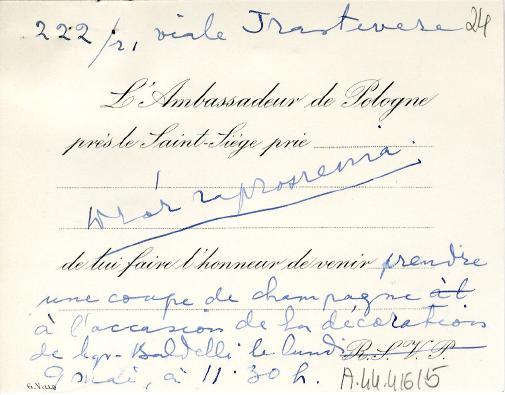 222/21, viale Trastevere
24
L'Ambassadeur de Pologne
près le Saint-Siège prie
wzór zaproszenia.
de lui faire l'honneur de venir prendre
une coupe de champagne
à l'occasion de la décoration
de Mgr. Baldelli le lundi R.S.V.P.
9 mai, à 11.30 h.
A.44.416/5